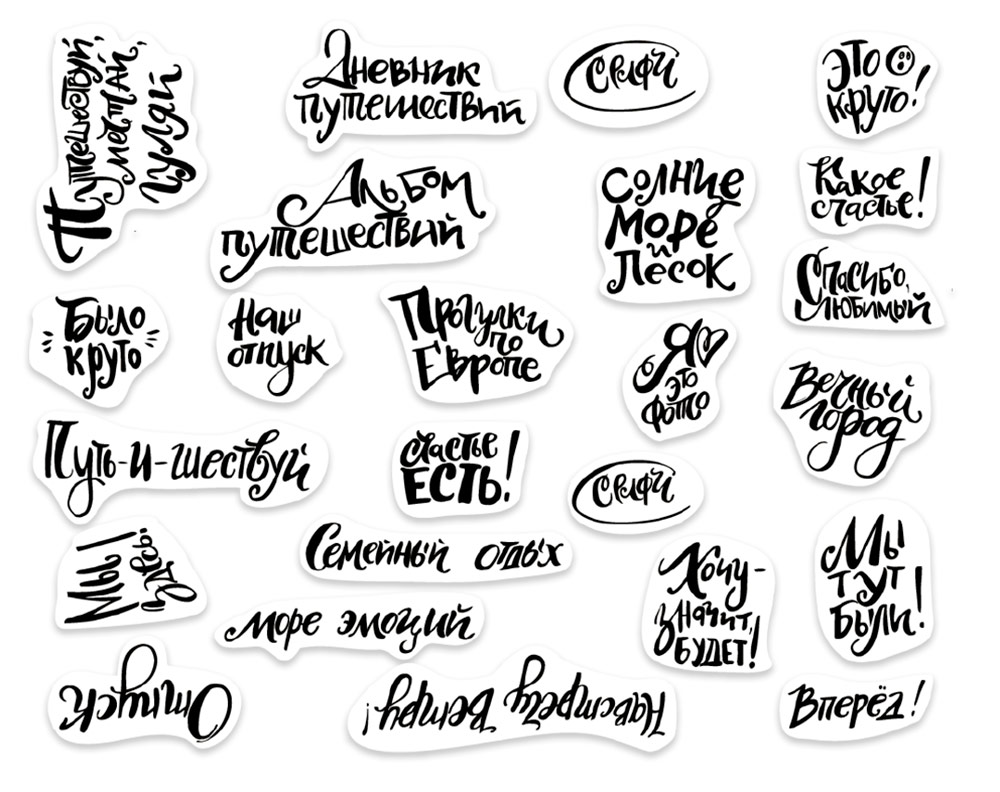 Путешествуй,
мечтай,
гуляй
Дневник
путешествий
Селфи
Это
круто!
Альбом
путешествий
Солнце
море
и
песок
Какое
счастье!
Спасибо,
любимый
Было
круто
Наш
отпуск
Прогулки
по
Европе
Я
это
фото
Вечный
город
Путь-и-шествуй
счастье
ЕСТЬ!
Селфи
Мы
здесь!
Семейный отдых
Хочу-
значит,
БУДЕТ!
Мы
тут
были!
море эмоций
Отпуск
Навстречу Ветру!
Вперёд!